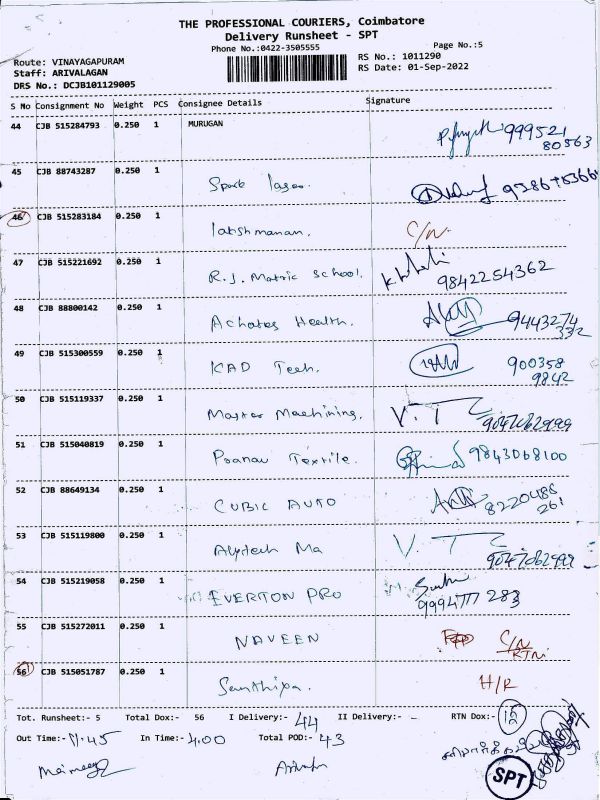 THE PROFESSIONAL COURIERS, Coimbatore
Delivery Runsheet - SPT
Phone No.:0422-3505555
Page No.:5
Route: VINAYAGAPURAM
RS No.: 1011290
Staff: ARIVALAGAN
RS Date: 01-Sep-2022
DRS No.: DCJB101129005
S No Consignment No Weight PCS Consignee Details Signature
44 CJB 515284793 0.250 1 MURUGAN 999521
80563
45 CJB 88743287 0.250 1
46 CJB 515283184 0.250 1 lakshmanan. C/N.
47 CJB 515221692 0.250 1 R.J. Matric School. 9842254362
48 CJB 88800142 0.250 1 Achates Health. 9443274
332
49 CJB 515300559 0.250 1 KAD Tech. 900358
9842
50 CJB 515119337 0.250 1 Master Machining. V.T
51 CJB 515040819 0.250 1 Pranav Textile. 9843068100
52 CJB 88649134 0.250 1 CUBIC AUTO 8220486
261
53 CJB 515119800 0.250 1 V.T
54 CJB 515219058 0.250 1 EVERTON PRO
9994777 283
55 CJB 515272011 0.250 1 NAVEEN C/N
RTN.
56 CJB 515051787 0.250 1 H/R
Tot. Runsheet:- 5 Total Dox:- 56 I Delivery:- 44 II Delivery:- - RTN Dox:- 12
Out Time:- 11.45 In Time:- 4.00 Total POD:- 43
SPT